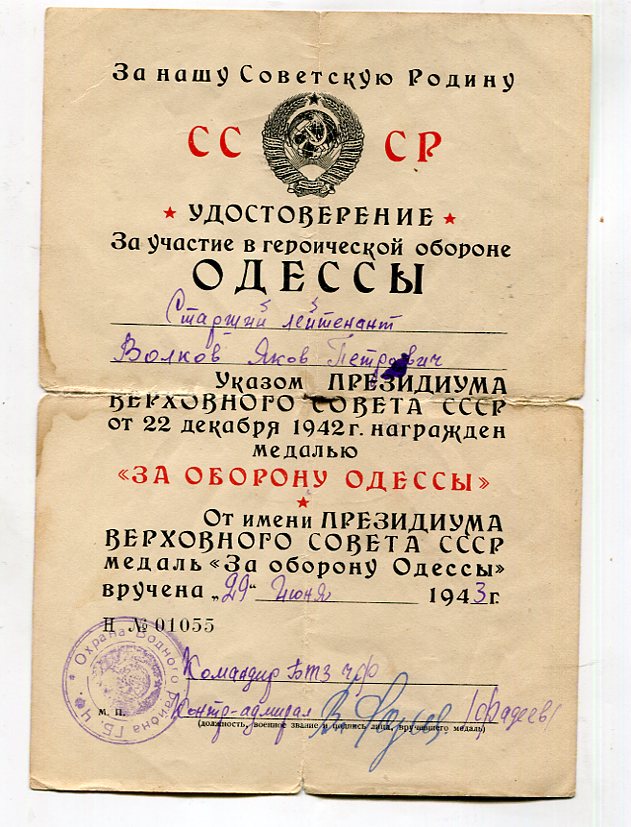 За нашу Советскую Родину
СС СР
УДОСТОВЕРЕНИЕ
За участие в героической обороне
ОДЕССЫ
Старший лейтенант
Волков Яков Петрович
Указом ПРЕЗИДИУМА
ВЕРХОВНОГО СОВЕТА СССР
от 22 декабря 1942 г. награжден
медалью
«ЗА ОБОРОНУ ОДЕССЫ»
От имени ПРЕЗИДИУМА
ВЕРХОВНОГО СОВЕТА СССР
медаль «За оборону Одессы»
вручена „29“ июня 1943 г.
Н № 01055
Охрана Водного Района ГБ ЧФ
Командир БТЗ ЧФ
М. П. Контр-адмирал /Фадеев/
(должность, военное звание и подпись лица, вручившего медаль)